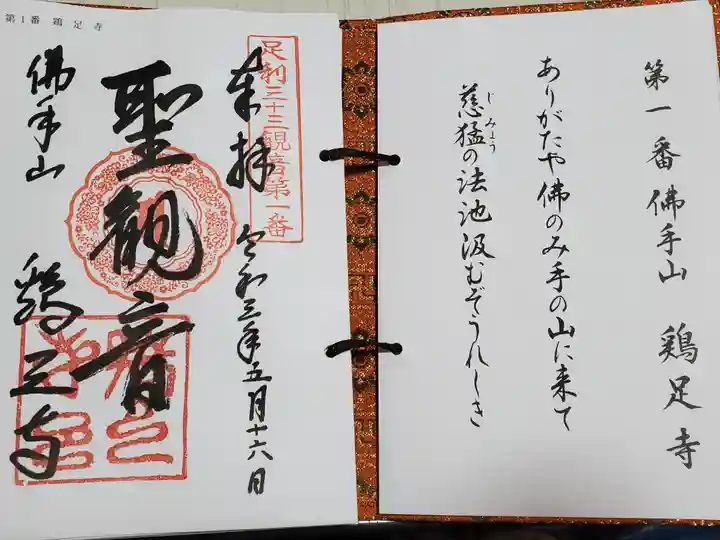 第一番佛手山 鶏足寺
ありがたや佛のみ手の山に来て
慈猛の法池汲むぞうれしき
じみょう
第1番 鶏足寺
足利三十三観音第一番
奉拝 令和三年五月十六日
聖観音
佛手山 鶏足寺